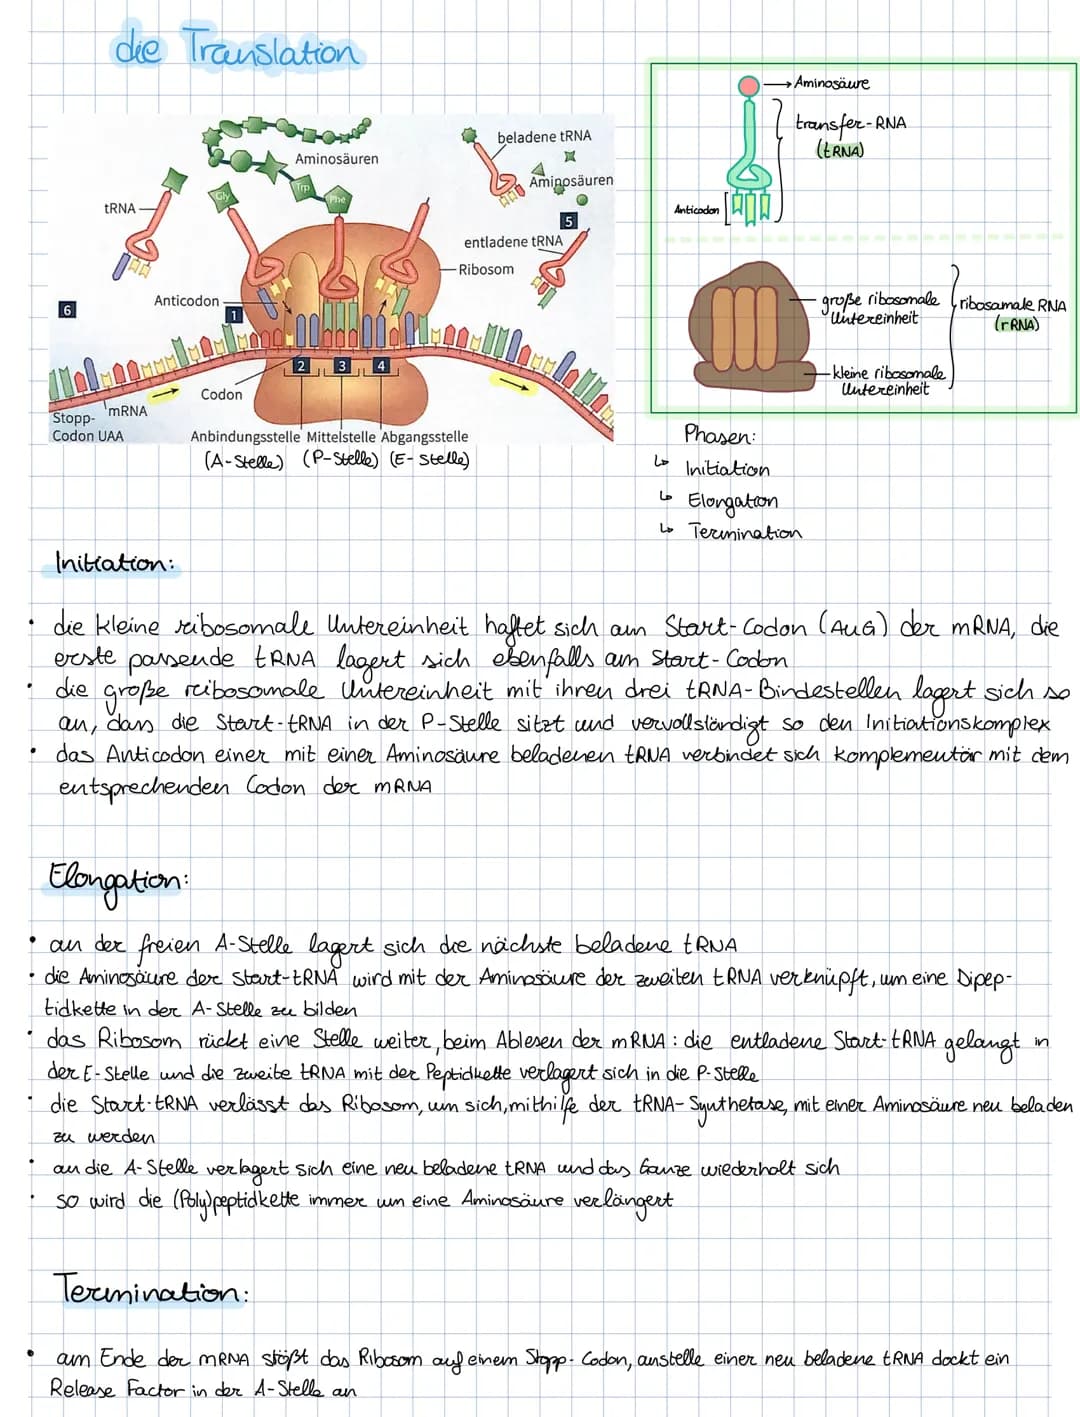 die Translation
Aminosäuren
beladene tRNA
Aminosäuren
tRNA
Gly
Trp
Phe
5
entladene tRNA
Ribosom
Anticodon
6
1
2
3
4
Codon
mRNA
Stopp-
Codon UAA
Anbindungsstelle Mittelstelle Abgangsstelle
(A-Stelle) (P-Stelle) (E-Stelle)
Aminosäure
transfer-RNA
(tRNA)
Anticodon
große ribosomale
Untereinheit
ribosomale RNA
(rRNA)
kleine ribosomale
Untereinheit
Phasen:
↳ Initiation
↳ Elongation
↳ Termination
Initiation:
• die kleine ribosomale Untereinheit haftet sich am Start-Codon (AUG) der mRNA, die
erste passende tRNA lagert sich ebenfalls am Start-Codon
• die große ribosomale Untereinheit mit ihren drei tRNA-Bindestellen lagert sich so
an, dass die Start-tRNA in der P-Stelle sitzt und vervollständigt so den Initiationskomplex
• das Anticodon einer mit einer Aminosäure beladenen tRNA verbindet sich komplementär mit dem
entsprechenden Codon der mRNA
Elongation:
• an der freien A-Stelle lagert sich die nächste beladene tRNA
• die Aminosäure der Start-tRNA wird mit der Aminosäure der zweiten tRNA verknüpft, um eine Dipep-
tidkette in der A-Stelle zu bilden
• das Ribosom rückt eine Stelle weiter, beim Ablesen der mRNA: die entladene Start-tRNA gelangt in
der E-Stelle und die zweite tRNA mit der Peptidkette verlagert sich in die P-Stelle
• die Start-tRNA verlässt das Ribosom, um sich, mithilfe der tRNA-Synthetase, mit einer Aminosäure neu beladen
zu werden
• an die A-Stelle verlagert sich eine neu beladene tRNA und das Ganze wiederholt sich
• so wird die (Poly)peptidkette immer um eine Aminosäure verlängert
Termination:
• am Ende der mRNA stößt das Ribosom auf einem Stopp-Codon, anstelle einer neu beladene tRNA dockt ein
Release Factor in der A-Stelle an